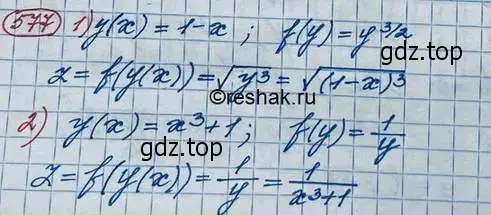 577 1) y(x) = 1 - x ; f(y) = y^{3/2}
gdz.top
z = f(y(x)) = √y³ = √(1-x)³
©reshak.ru
2) y(x) = x³+1; f(y) = 1/y
gdz.top
z = f(y(x)) = 1/y = 1/(x³+1)
gdz.top